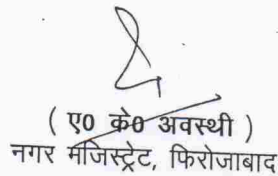 ( ए0 के0 अवस्थी )
नगर मजिस्ट्रेट, फिरोजाबाद